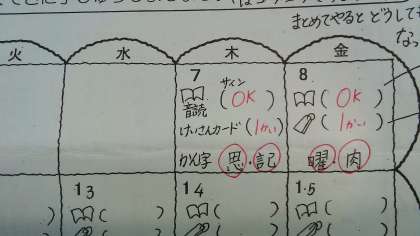 まとめてやると どうしても
なっ
火 水 木 金
7 サイン
音読 (OK)
けいさんカード (1かい)
かん字 思・記
8
(OK)
(1かい)
曜 肉
13 14 15
( ) ( ) (